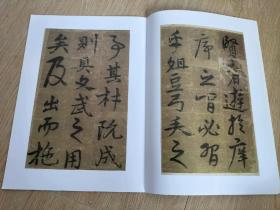 賢者遊於庠
序之間必習
乎俎豆弓矢之
事其材既成
則具文武之用
矣及出而施